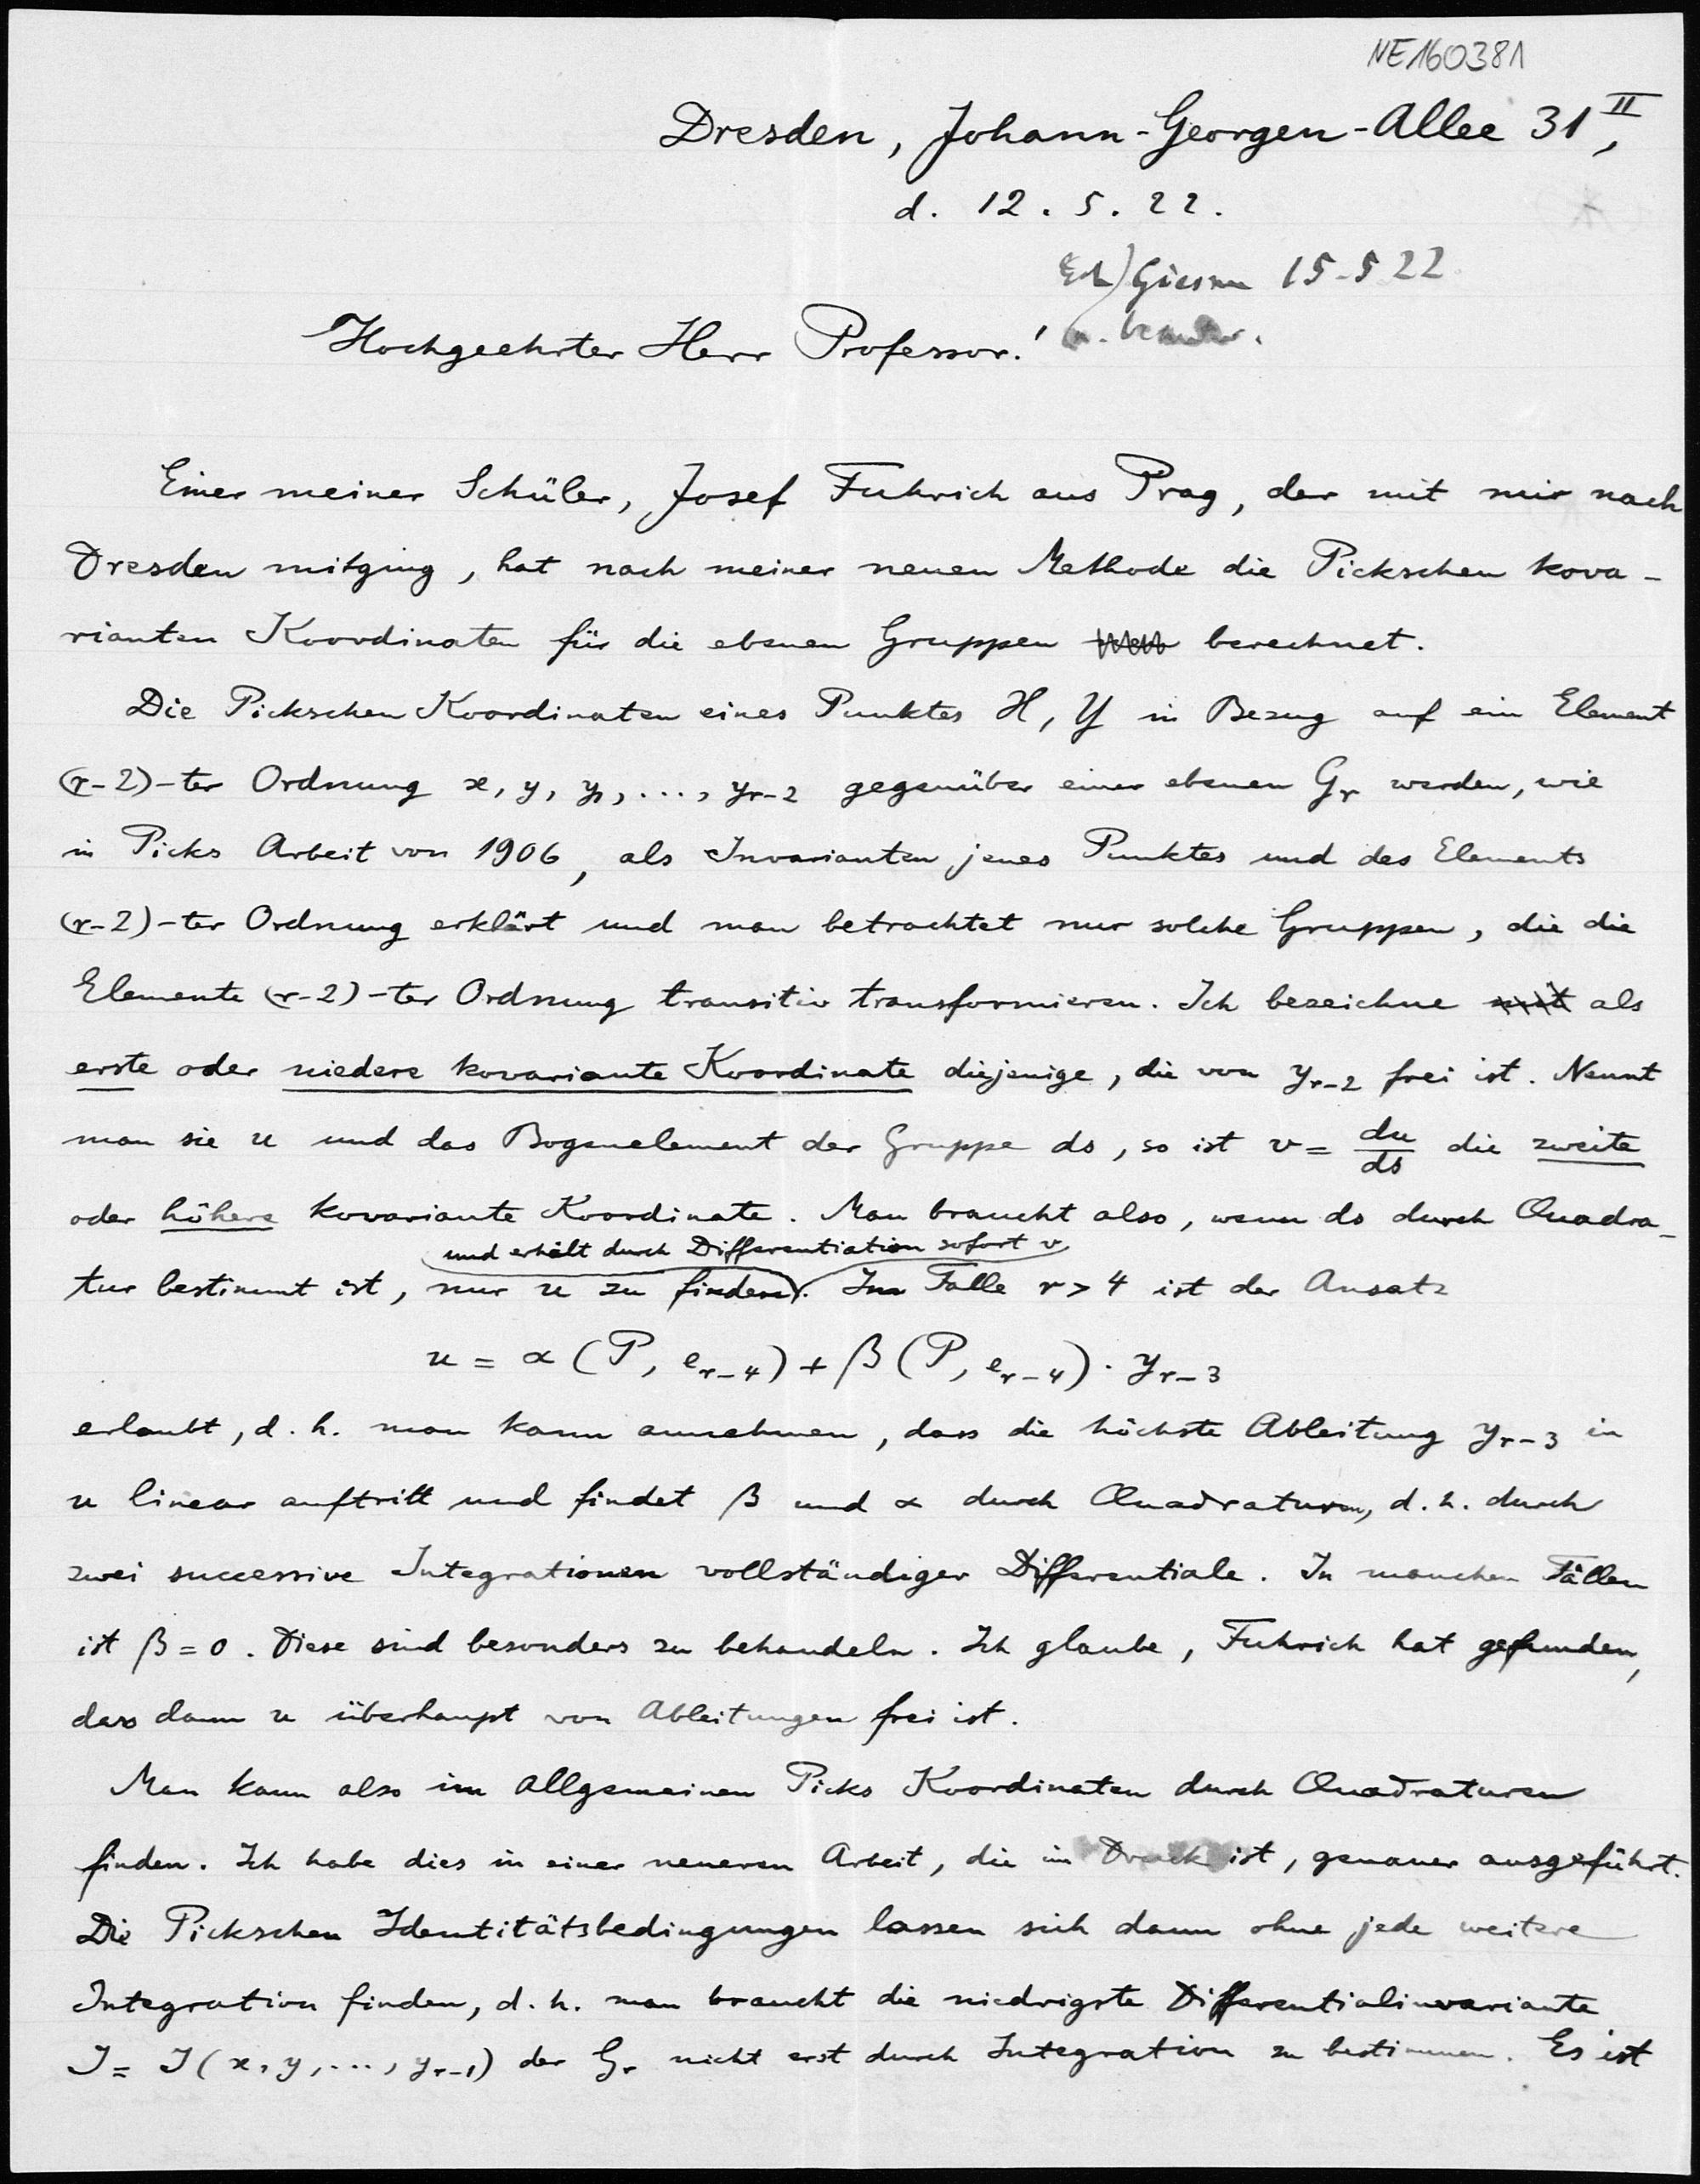 NE160381
Dresden, Johann-Georgen-Allee 31 II,
d. 12. 5. 22.
Giessen 15-5 22
Hochgeehrter Herr Professor!
Einer meiner Schüler, Josef Fuhrich aus Prag, der mit mir nach
Dresden mitging, hat nach meiner neuen Methode die Pickschen kova-
rianten Koordinaten für die ebenen Gruppen berechnet.
Die Pickschen Koordinaten eines Punktes X, Y in Bezug auf ein Element
(r-2)-ter Ordnung x, y, y₁, ..., yᵣ₋₂ gegenüber einer ebenen Gᵣ werden, wie
in Picks Arbeit von 1906, als Invarianten jenes Punktes und des Elements
(r-2)-ter Ordnung erklärt und man betrachtet nur solche Gruppen, die die
Elemente (r-2)-ter Ordnung transitiv transformieren. Ich bezeichne als
erste oder niedere kovariante Koordinate diejenige, die von yᵣ₋₂ frei ist. Nennt
man sie u und das Bogenelement der Gruppe ds, so ist v = du/ds die zweite
oder höhere kovariante Koordinate. Man braucht also, wenn ds durch Quadra-
und erhält durch Differentiation sofort v
tur bestimmt ist, nur u zu finden. Im Falle r > 4 ist der Ansatz
u = α (P, eᵣ₋₄) + β (P, eᵣ₋₄) · yᵣ₋₃
erlaubt, d. h. man kann annehmen, dass die höchste Ableitung yᵣ₋₃ in
u linear auftritt und findet β und α durch Quadraturen, d. h. durch
zwei successive Integrationen vollständiger Differentiale. In manchen Fällen
ist β = 0. Diese sind besonders zu behandeln. Ich glaube, Fuhrich hat gefunden,
dass dann u überhaupt von Ableitungen frei ist.
Man kann also im allgemeinen Picks Koordinaten durch Quadraturen
finden. Ich habe dies in einer neueren Arbeit, die im Druck ist, genauer ausgeführt.
Die Pickschen Identitätsbedingungen lassen sich dann ohne jede weitere
Integration finden, d. h. man braucht die niedrigste Differentialinvariante
J = J (x, y, ..., yᵣ₋₁) der Gᵣ nicht erst durch Integration zu bestimmen. Es ist